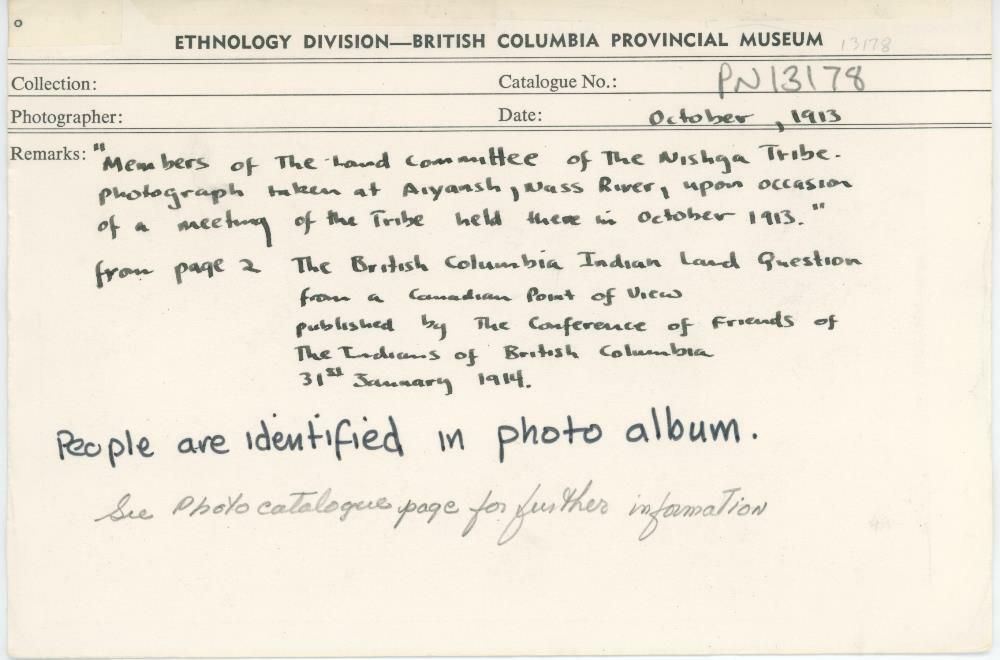 ETHNOLOGY DIVISION—BRITISH COLUMBIA PROVINCIAL MUSEUM 13178
Collection: Catalogue No.: PN13178
Photographer: Date: October, 1913
Remarks: "Members of The Land Committee of The Nishga Tribe.
Photograph taken at Aiyansh, Nass River, upon occasion
of a meeting of the Tribe held there in October 1913."
from page 2 The British Columbia Indian Land Question
from a Canadian Point of View
published by The Conference of Friends of
The Indians of British Columbia
31st January 1914.
People are identified in photo album.
See Photo catalogue page for further information